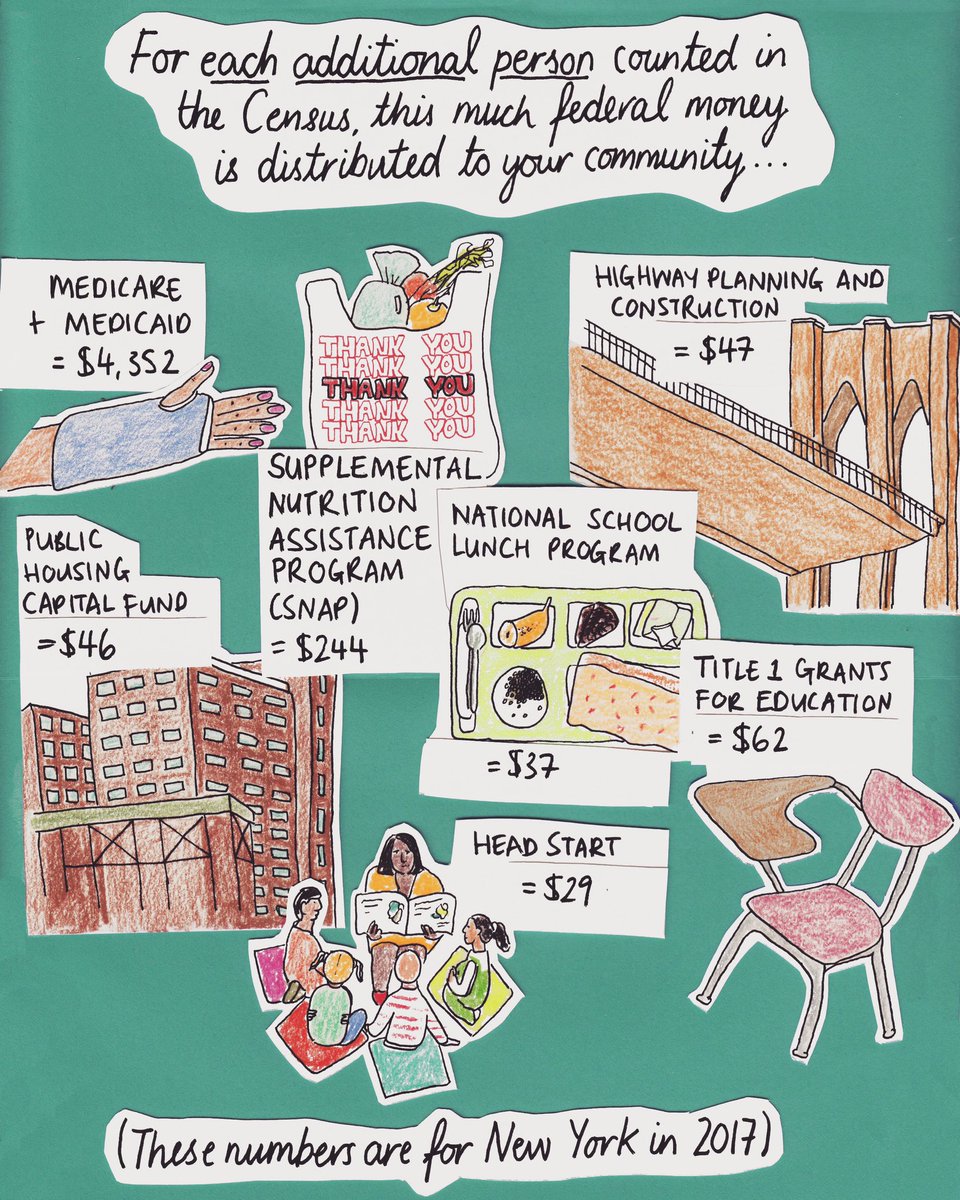 For each additional person counted in
the Census, this much federal money
is distributed to your community...
MEDICARE
+ MEDICAID
= $4,352
THANK YOU
THANK YOU
THANK YOU
THANK YOU
THANK YOU
HIGHWAY PLANNING AND
CONSTRUCTION
= $47
SUPPLEMENTAL
NUTRITION
ASSISTANCE
PROGRAM
(SNAP)
= $244
NATIONAL SCHOOL
LUNCH PROGRAM
= $37
PUBLIC
HOUSING
CAPITAL FUND
= $46
TITLE 1 GRANTS
FOR EDUCATION
= $62
HEAD START
= $29
(These numbers are for New York in 2017)